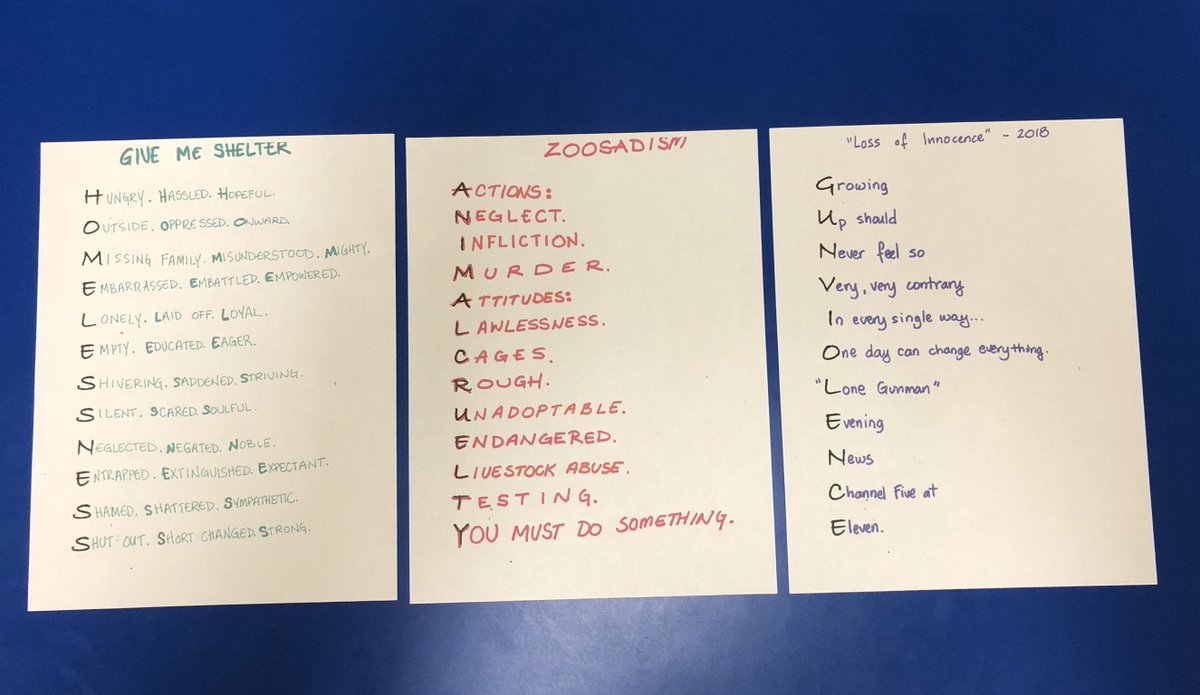 GIVE ME SHELTER
HUNGRY. HASSLED. HOPEFUL.
OUTSIDE. OPPRESSED. ONWARD.
MISSING FAMILY. MISUNDERSTOOD. MIGHTY.
EMBARRASSED. EMBATTLED. EMPOWERED.
LONELY. LAID OFF. LOYAL.
EMPTY. EDUCATED. EAGER.
SHIVERING. SADDENED. STRIVING.
SILENT. SCARED. SOULFUL.
NEGLECTED. NEGATED. NOBLE.
ENTRAPPED. EXTINGUISHED. EXPECTANT.
SHAMED. SHATTERED. SYMPATHETIC.
SHUT OUT. SHORT CHANGED. STRONG.
ZOOSADISM
ACTIONS:
NEGLECT.
INFLICTION.
MURDER.
ATTITUDES:
LAWLESSNESS.
CAGES.
ROUGH.
UNADOPTABLE.
ENDANGERED.
LIVESTOCK ABUSE.
TESTING.
YOU MUST DO SOMETHING.
"Loss of Innocence" - 2018
Growing
Up should
Never feel so
Very, very contrary
In every single way...
One day can change everything.
"Lone Gunman"
Evening
News
Channel Five at
Eleven.